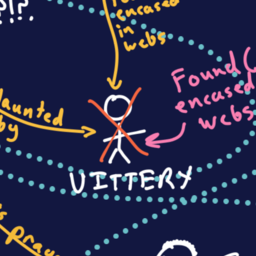 ?!?
found
encased
in
webs
Found (
encased
webs
Haunted
by
VITTERY